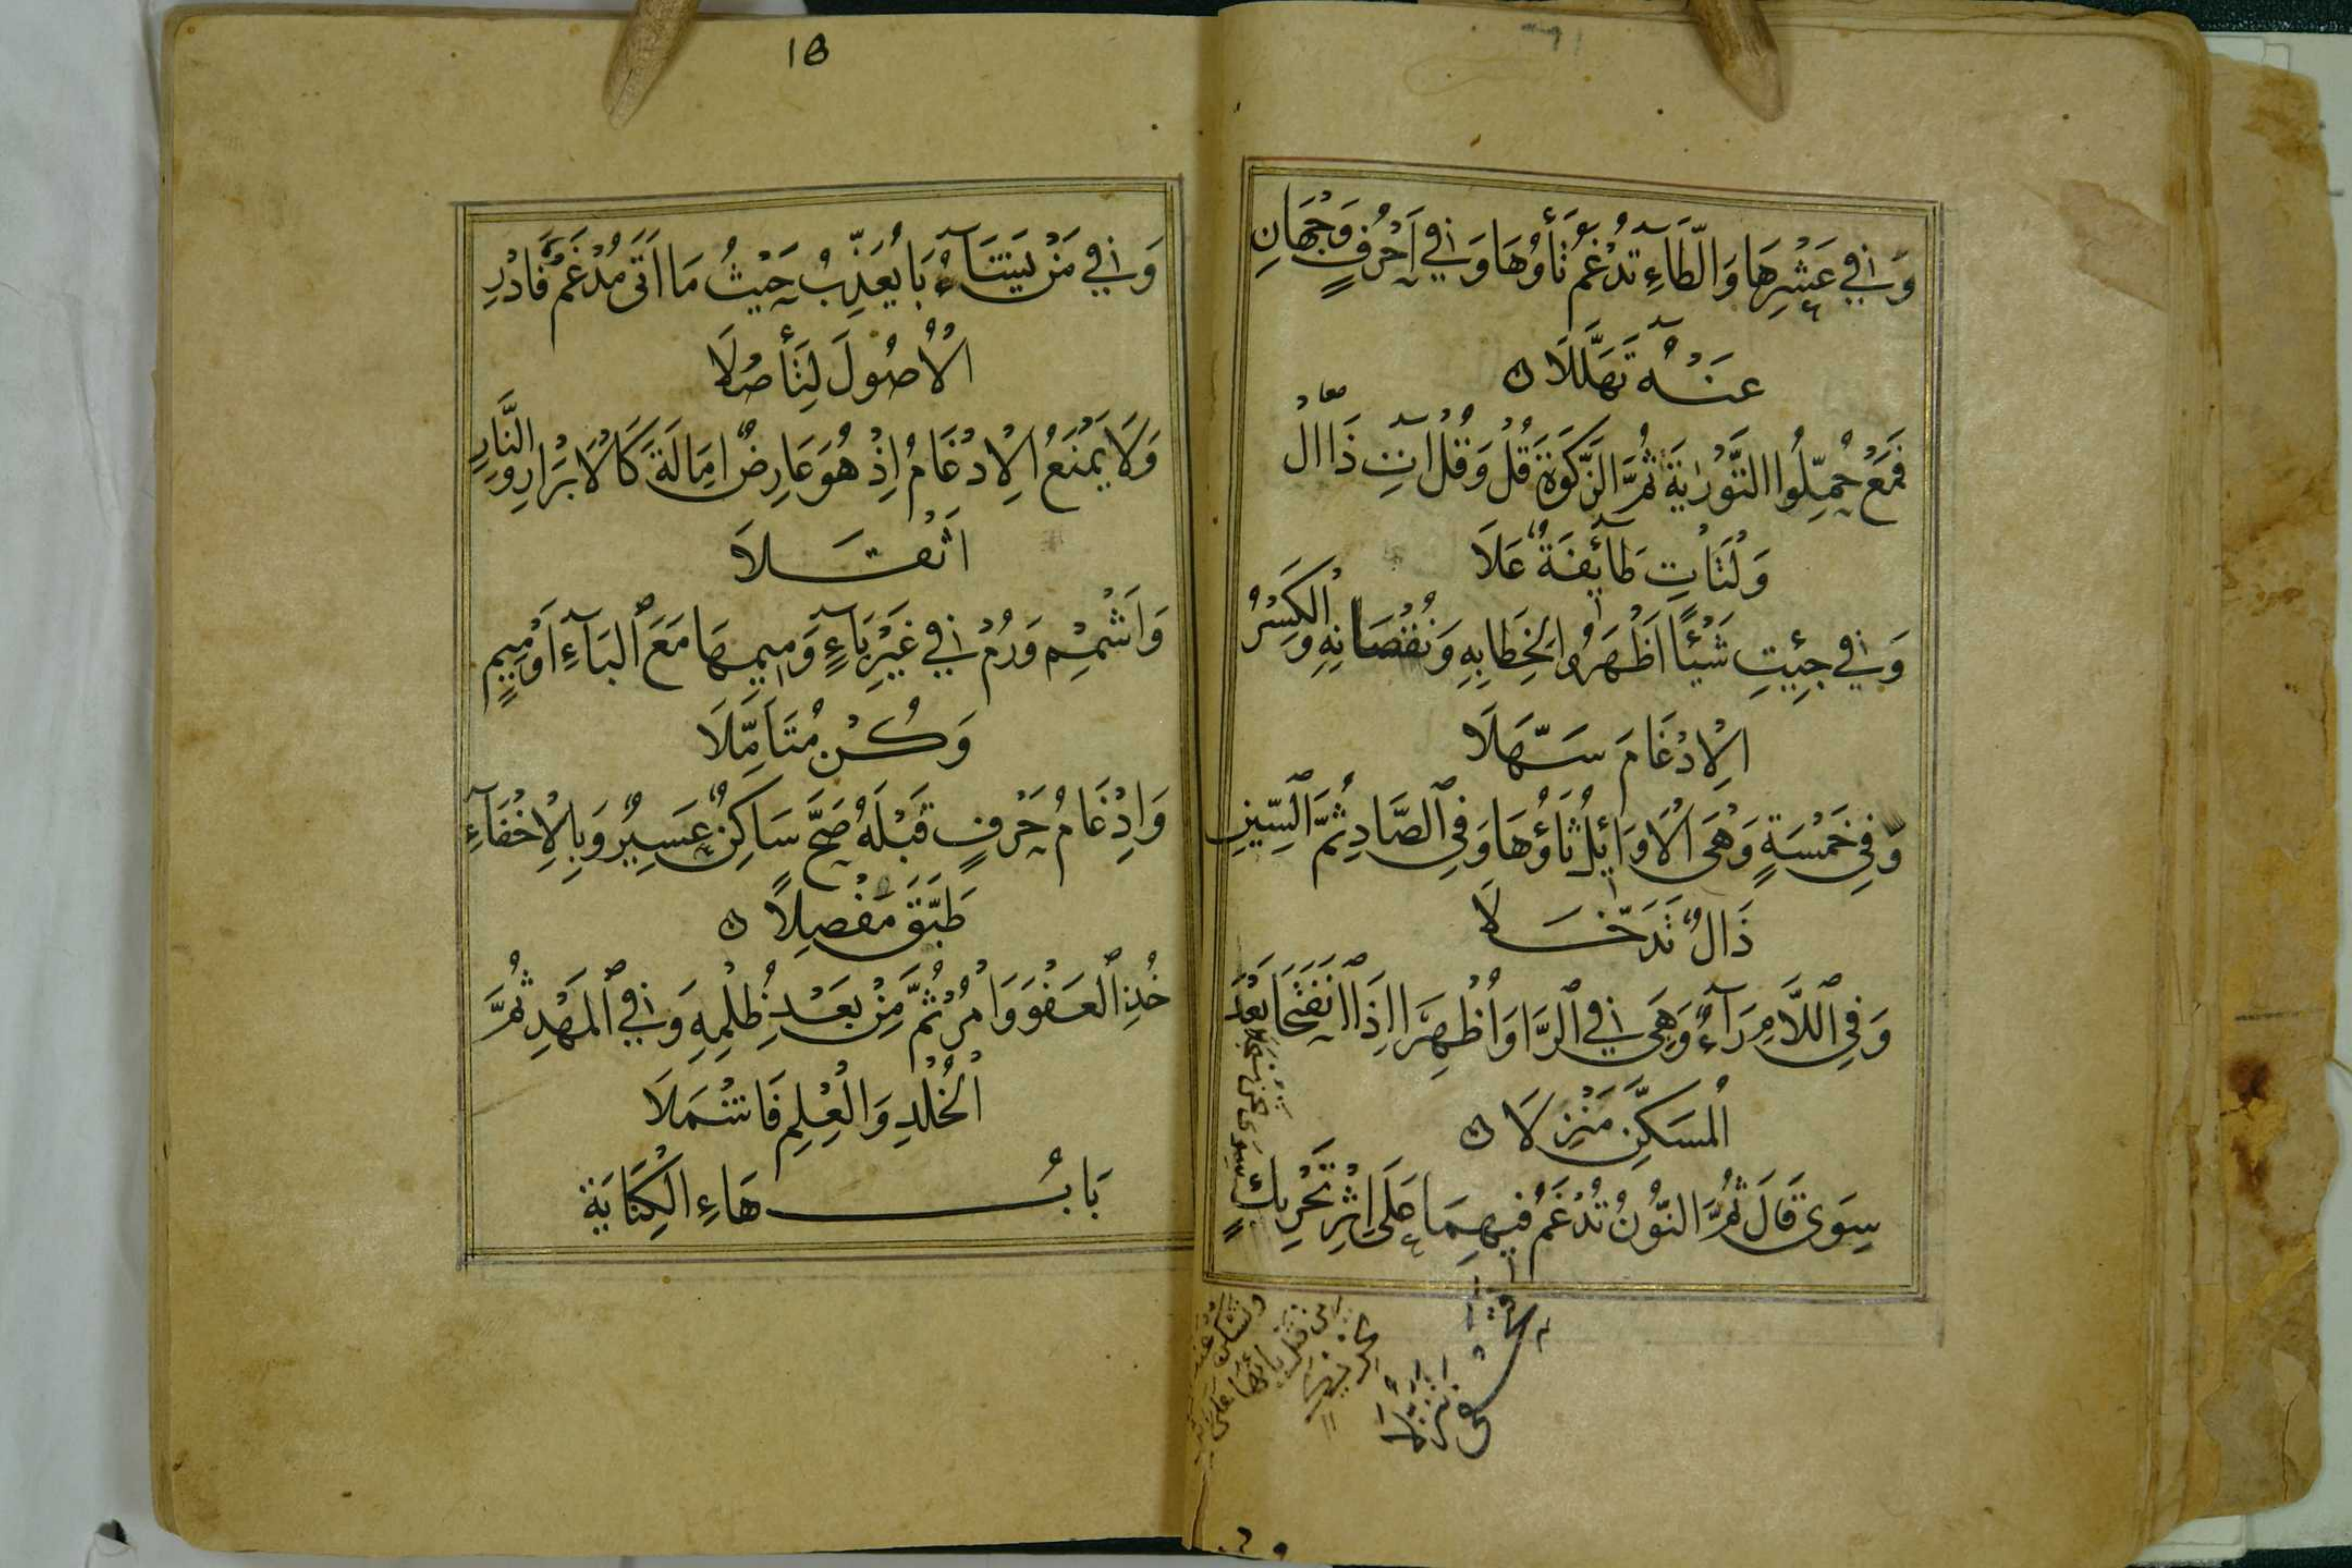 وَفِي عَشْرِهَا وَالطَّاءِ تُدْغَمُ تَأْؤُهَا وَفِي أَحْرُفٍ وَجْهَانِ
عَنْهُ تَهَلَّلَا
فَمَعْ حُمِّلُوا التَّوْرٰيةَ ثُمَّ الزَّكٰوةَ قُلْ وَقُلْ اٰتِ ذَا الْ
وَلْتَأْتِ طَآئِفَةٌ عَلَا
وَفِي جِئْتِ شَيْئًا أَظْهَرُوا لِخِطَابِهِ وَنُقْصَانِهِ وَالْكَسْرُ
الْإِدْغَامَ سَهَّلَا
وَفِي خَمْسَةٍ وَهْيَ الْأَوَائِلُ ثَاؤُهَا وَفِي الصَّادِ ثُمَّ السِّينِ
ذَالٌ تَدَخَّلَا
وَفِي اللَّامِ رَآءٌ وَهْيَ فِي الرَّا وَأُظْهِرَا إِذَا انْفَتَحَا بَعْدَ
الْمُسَكَّنِ مُنْزَلَا
سِوَى قَالَ ثُمَّ النُّونُ تُدْغَمُ فِيهِمَا عَلَى إِثْرِ تَحْرِيكٍ
سِوَى نَحْنُ مُسْجَلَا
18
وَفِي مَنْ يَشَآءُ بَا يُعَذِّبُ حَيْثُ مَا أَتَى مُدْغَمٌ فَادْرِ
الْأُصُولَ لِتَأْصُلَا
وَلَا يَمْنَعُ الْإِدْغَامُ إِذْ هُوَ عَارِضٌ إِمَالَةَ كَالْأَبْرَارِ وَالنَّارِ
أَثْقَلَا
وَأَشْمِمْ وَرُمْ فِي غَيْرِ بَآءٍ وَمِيمِهَا مَعَ الْبَآءِ أَوْ مِيمٍ
وَكُنْ مُتَأَمِّلَا
وَإِدْغَامُ حَرْفٍ قَبْلَهُ صَحَّ سَاكِنٌ عَسِيرٌ وَبِالْإِخْفَآءِ
طَبَّقَ مَفْصِلًا
خُذِ الْعَفْوَ وَأْمُرْ ثُمَّ مِنْ بَعْدِ ظُلْمِهِ وَفِي الْمَهْدِ ثُمَّ
الْخُلْدِ وَالْعِلْمِ فَاشْمَلَا
بَابُ هَاءِ الْكِنَايَةِ